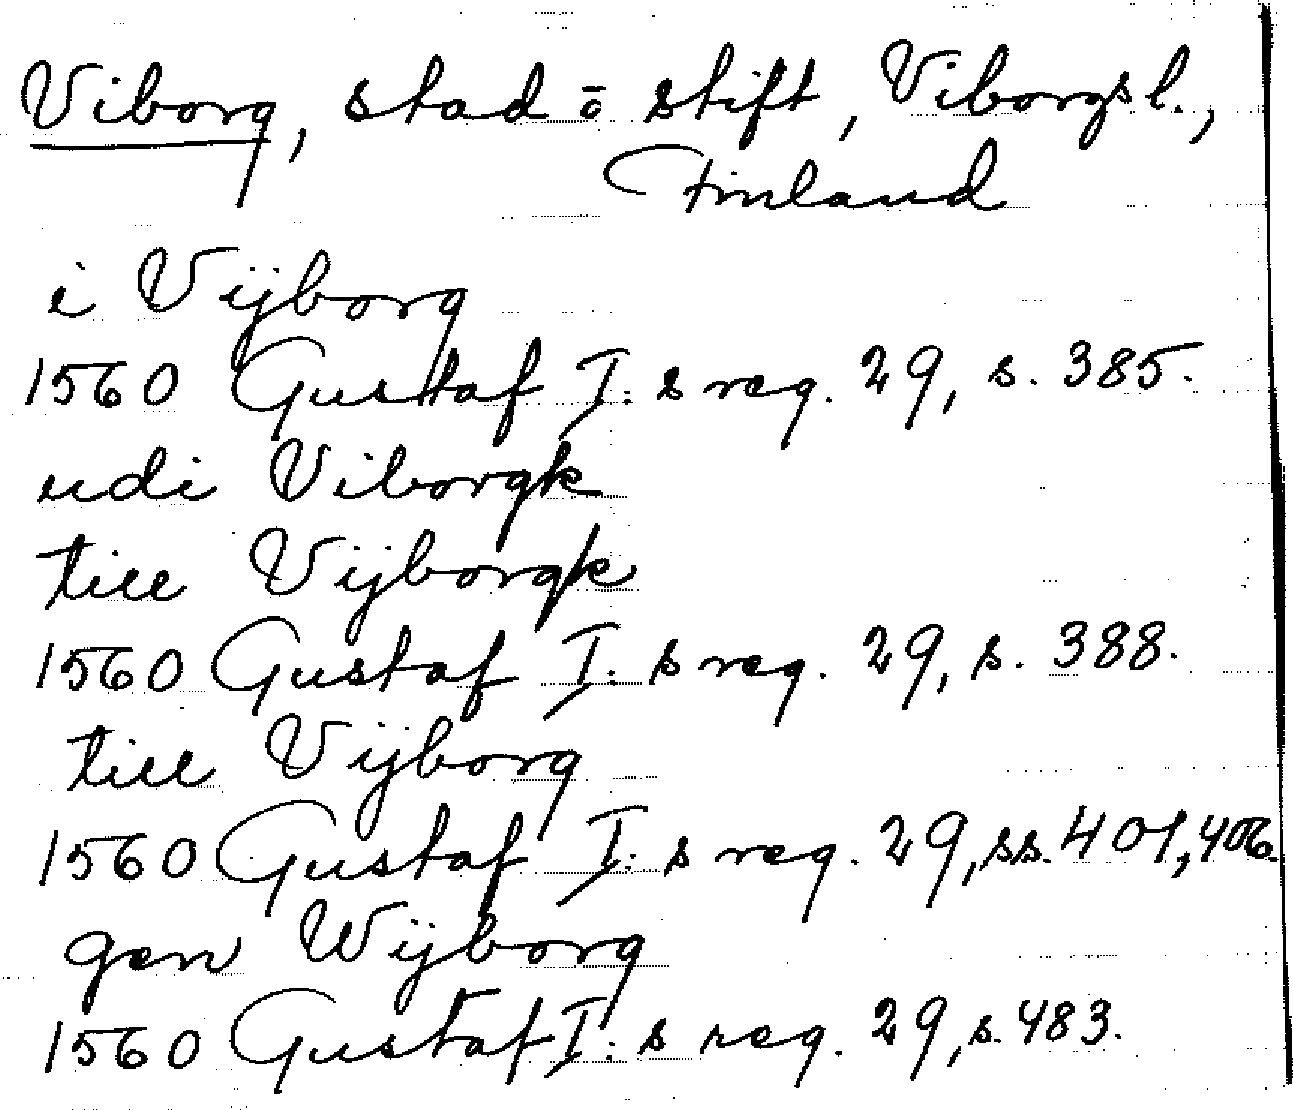 Viborg, stad o stift, Viborgs l.,
Finland
i Vijborg
1560 Gustaf I:s reg. 29, s. 385.
udi Viborgk
till Vijborgk
1560 Gustaf I:s reg. 29, s. 388.
till Vijborg
1560 Gustaf I:s reg. 29, ss. 401, 406.
gen Wijborg
1560 Gustaf I:s reg. 29, s. 483.